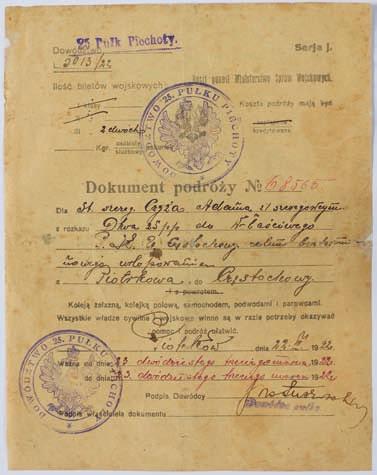 25 Pułk Piechoty.
Dowództwo
Serja j.
L. 2013/22
Ilość biletów wojskowych:
Koszta podróży mają być
dla 2 dwóch
kredytowane
Kgr.
DOWÓDZTWO 25. PUŁKU PIECHOTY
Dokument podróży № 68565
Dla St. szereg. Czyża Adama z 1 szeregowym
z rozkazu Dtwa 25 p.p. do
z Piotrkowa do Częstochowy
i z powrotem.
Koleją żelazną, kolejką polową, samochodem, podwodami i parowcami.
Wszystkie władze cywilne i wojskowe winne są w razie potrzeby okazywać
pomoc i podróż ułatwić.
Piotrków dnia 22/III 1922
Ważna od dnia 23 dwudziestego trzeciego marca 1922
do dnia 23. dwudziestego trzeciego marca 1922
Podpis Dowódcy
Dowódca pułku
Podpis właściciela dokumentu
DOWÓDZTWO 25. PUŁKU PIECHOTY